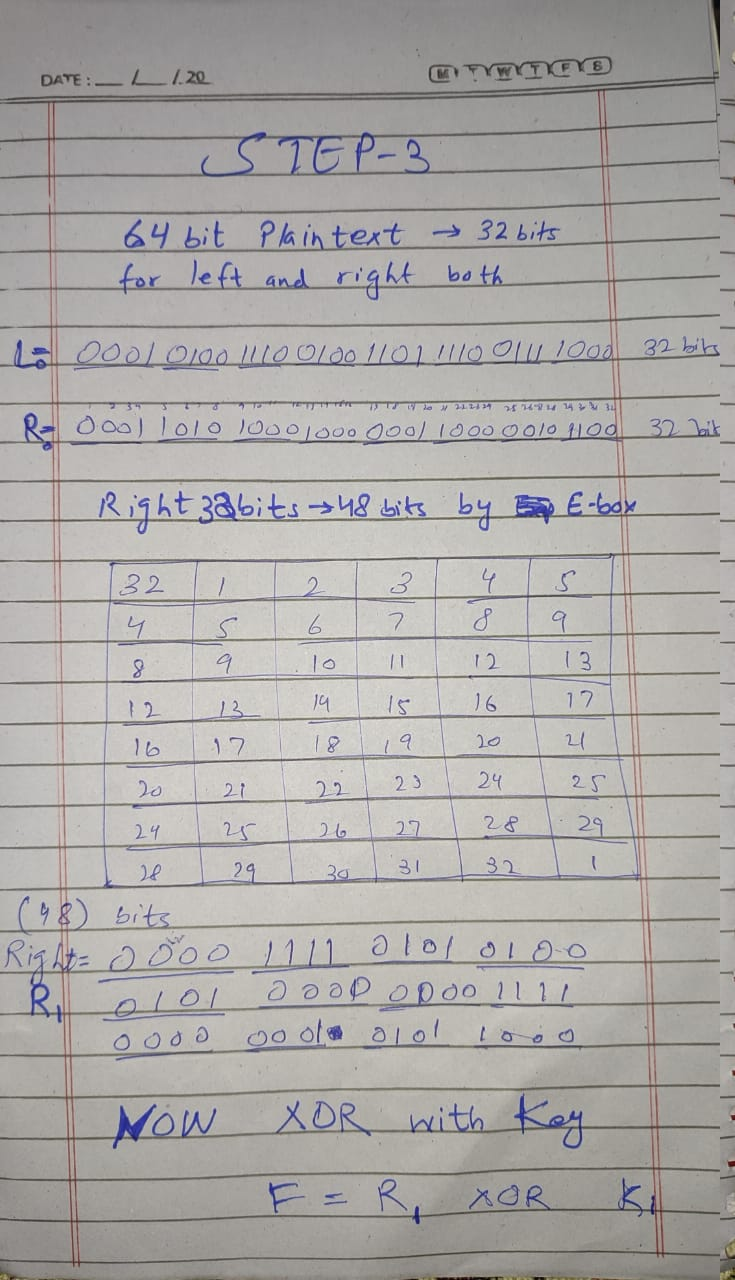 DATE: __/__/20 M T W T F S
STEP-3
64 bit Plain text → 32 bits
for left and right both
L0= 0001 0100 1110 0100 1101 1110 0111 1000 32 bits
R0= 0001 1010 1000 1000 0001 1000 0010 1100 32 bit
Right 32bits → 48 bits by E-box
32 1 2 3 4 5
4 5 6 7 8 9
8 9 10 11 12 13
12 13 14 15 16 17
16 17 18 19 20 21
20 21 22 23 24 25
24 25 26 27 28 29
28 29 30 31 32 1
(48) bits
Right= 0000 1111 0101 0100
R1 0101 0000 0000 1111
0000 0001 0101 1000
NOW XOR with Key
F = R1 XOR K1